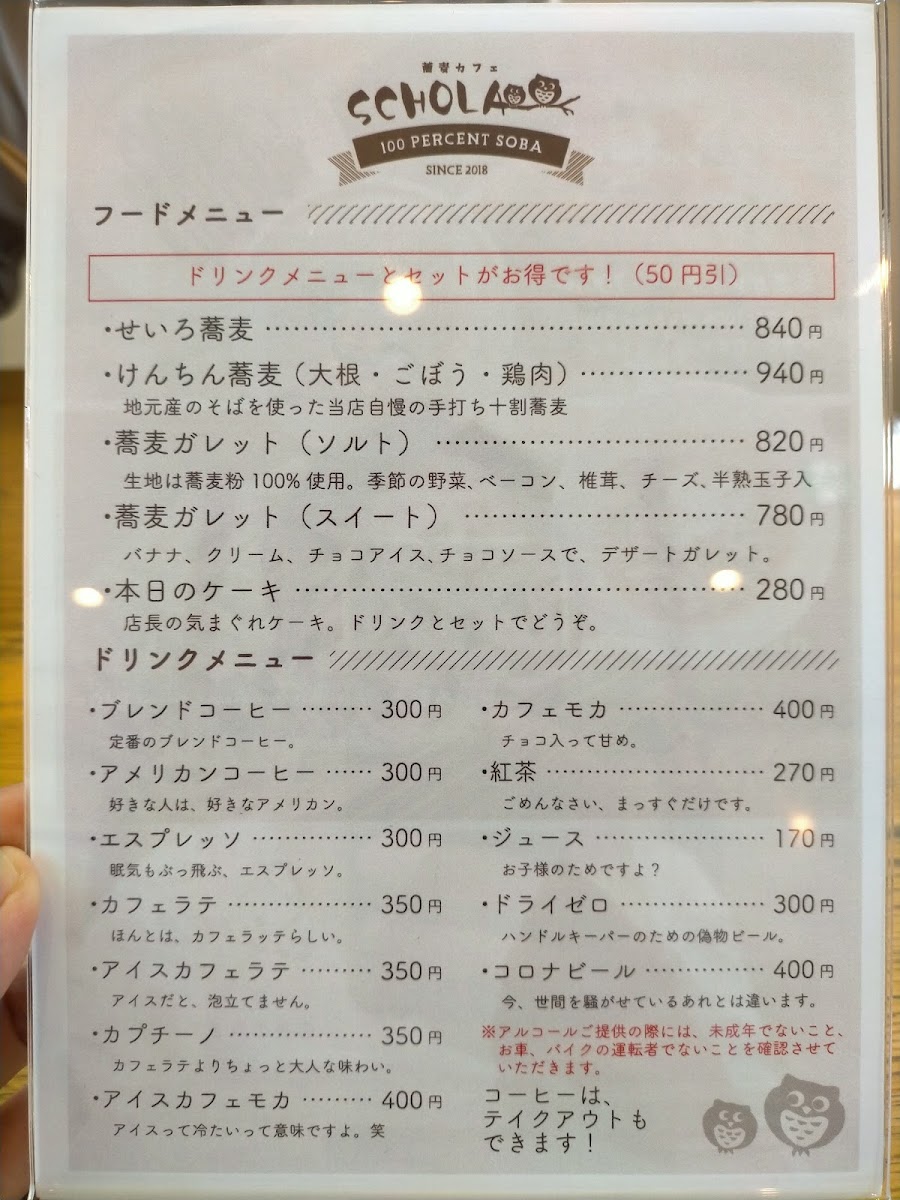 蕎麦カフェ
SCHOLA
100 PERCENT SOBA
SINCE 2018
フードメニュー
ドリンクメニューとセットがお得です！（50円引）
・せいろ蕎麦 ……………………………………… 840円
・けんちん蕎麦（大根・ごぼう・鶏肉） …………… 940円
地元産のそばを使った当店自慢の手打ち十割蕎麦
・蕎麦ガレット（ソルト） ………………………… 820円
生地は蕎麦粉100%使用。季節の野菜、ベーコン、椎茸、チーズ、半熟玉子入
・蕎麦ガレット（スイート） ……………………… 780円
バナナ、クリーム、チョコアイス、チョコソースで、デザートガレット。
・本日のケーキ …………………………………… 280円
店長の気まぐれケーキ。ドリンクとセットでどうぞ。
ドリンクメニュー
・ブレンドコーヒー ……… 300円
定番のブレンドコーヒー。
・アメリカンコーヒー …… 300円
好きな人は、好きなアメリカン。
・エスプレッソ …………… 300円
眠気もぶっ飛ぶ、エスプレッソ。
・カフェラテ ……………… 350円
ほんとは、カフェラッテらしい。
・アイスカフェラテ ……… 350円
アイスだと、泡立てません。
・カプチーノ ……………… 350円
カフェラテよりちょっと大人な味わい。
・アイスカフェモカ ……… 400円
アイスって冷たいって意味ですよ。笑
・カフェモカ ……………… 400円
チョコ入って甘め。
・紅茶 ……………………… 270円
ごめんなさい、まっすぐだけです。
・ジュース ………………… 170円
お子様のためですよ？
・ドライゼロ ……………… 300円
ハンドルキーパーのための偽物ビール。
・コロナビール …………… 400円
今、世間を騒がせているあれとは違います。
※アルコールご提供の際には、未成年でないこと、
お車、バイクの運転者でないことを確認させて
いただきます。
コーヒーは、
テイクアウトも
できます！